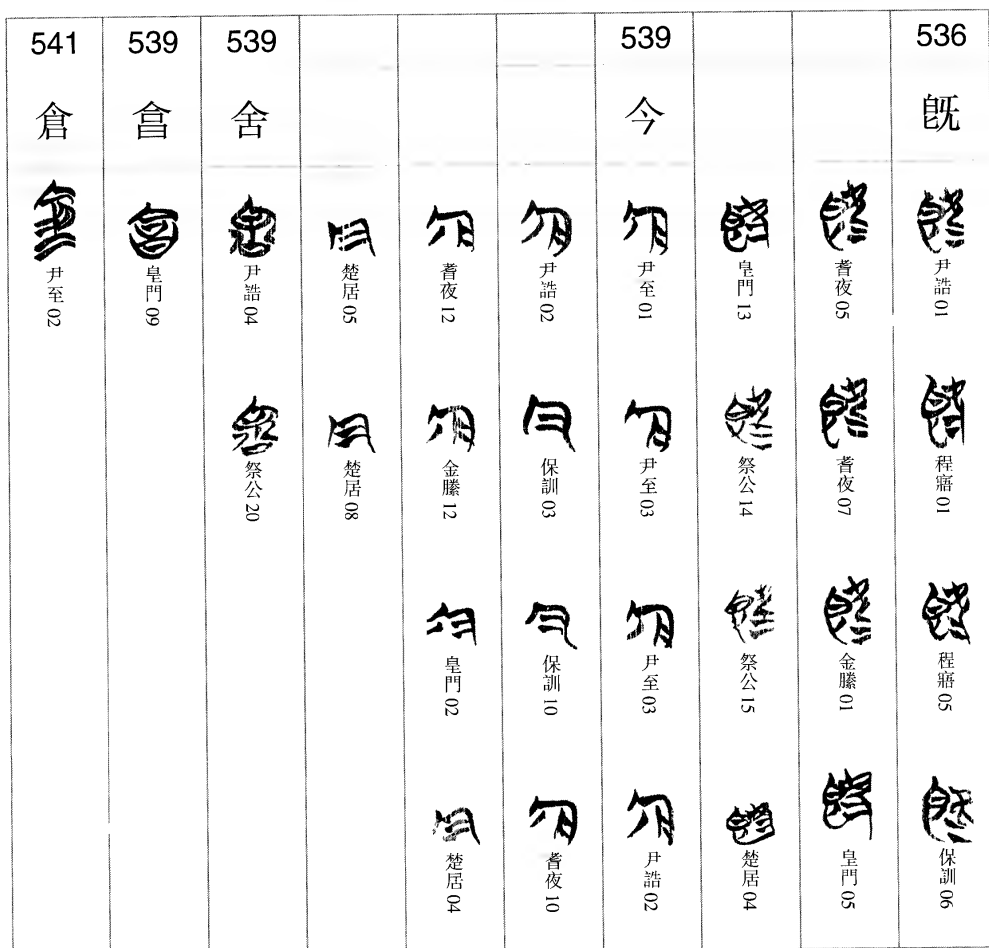 536
旣
尹誥 01
程寤 01
程寤 05
保訓 06
耆夜 05
耆夜 07
金縢 01
皇門 05
皇門 13
祭公 14
祭公 15
楚居 04
539
今
尹至 01
尹至 03
尹至 03
尹誥 02
尹誥 02
保訓 03
保訓 10
耆夜 10
耆夜 12
金縢 12
皇門 02
楚居 04
楚居 05
楚居 08
539
舍
尹誥 04
祭公 20
539
皇門 09
541
倉
尹至 02